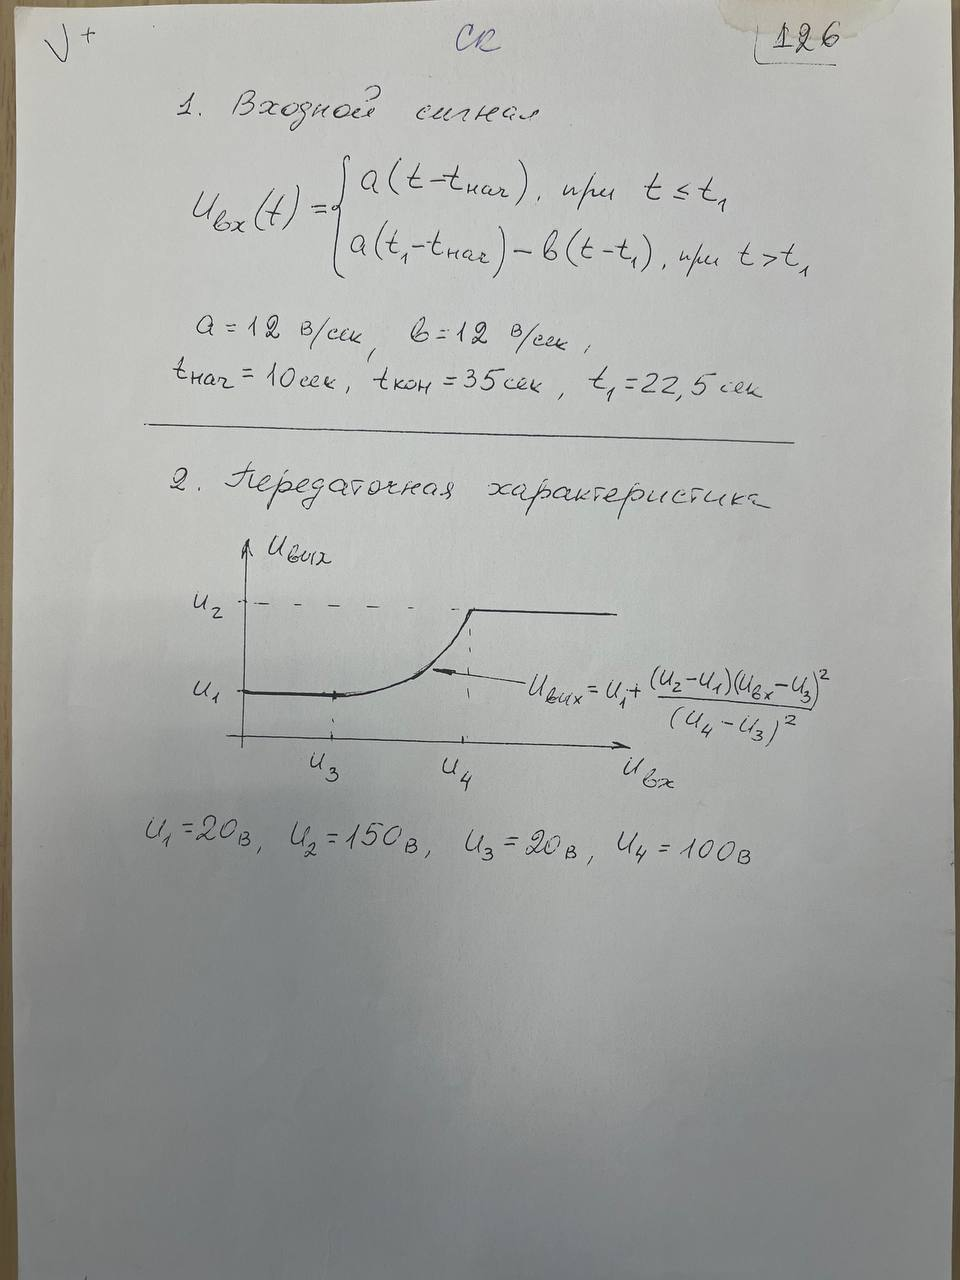 √+ СК 126
1. Входной сигнал
Uвх(t) = { a(t-tнач), при t ≤ t1
a(t1-tнач) - в(t-t1), при t > t1
a = 12 в/сек, в = 12 в/сек,
tнач = 10сек, tкон = 35сек, t1 = 22,5сек
2. Передаточная характеристика
Uвых
U2
U1
Uвых = U1 + (U2-U1)(Uвх-U3)² / (U4-U3)²
U3 U4 Uвх
U1 = 20в, U2 = 150в, U3 = 20в, U4 = 100в